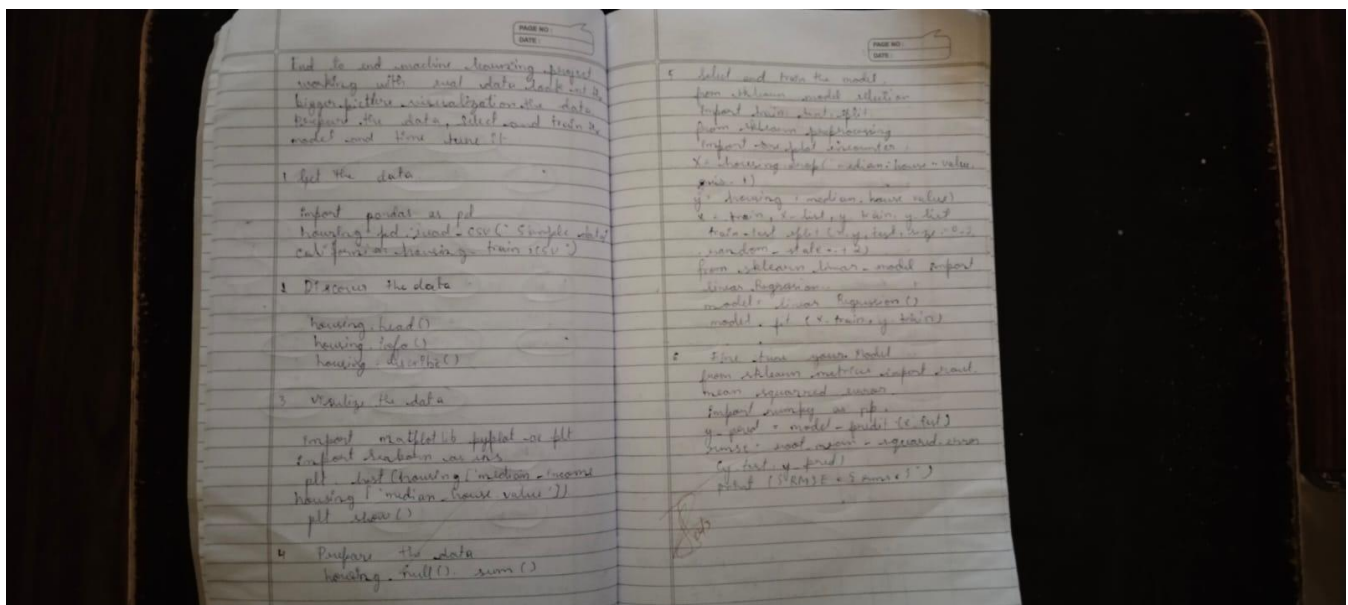 PAGE NO :
DATE :
End to end machine learning project
working with real data look at the
bigger picture visualization the data
Prepare the data, select and train the
model and time tune it
1 Get the data
import pandas as pd
housing pd read_csv("Sample_data/
california housing train.csv")
2 Discover the data
housing.head()
housing.info()
housing.describe()
3 the data
import matplotlib pyplot as plt
import seaborn as sns
plt. (housing['median_income
housing['median_house value'])
plt show()
4 Prepare the data
housing.null(). sum()
PAGE NO :
DATE :
5 Select and train the model.
from sklearn model selection
import train test split
from sklearn preprocessing
import one
x = housing drop('median-house-value
axis = 1)
y = housing (median, house value)
x = train, x-test, y train, y test
train-test split (x, y, test, size = 0.2
random-state =
from sklearn linear-model import
linear Regression
model = linear Regression()
model. fit (x. train, y train)
Fine tune your Model
from sklearn metrics import
mean squared error
import numpy as
y_pred = model-predict (x test)
rmse = root mean-squared-error
(y test, y_pred)
print (